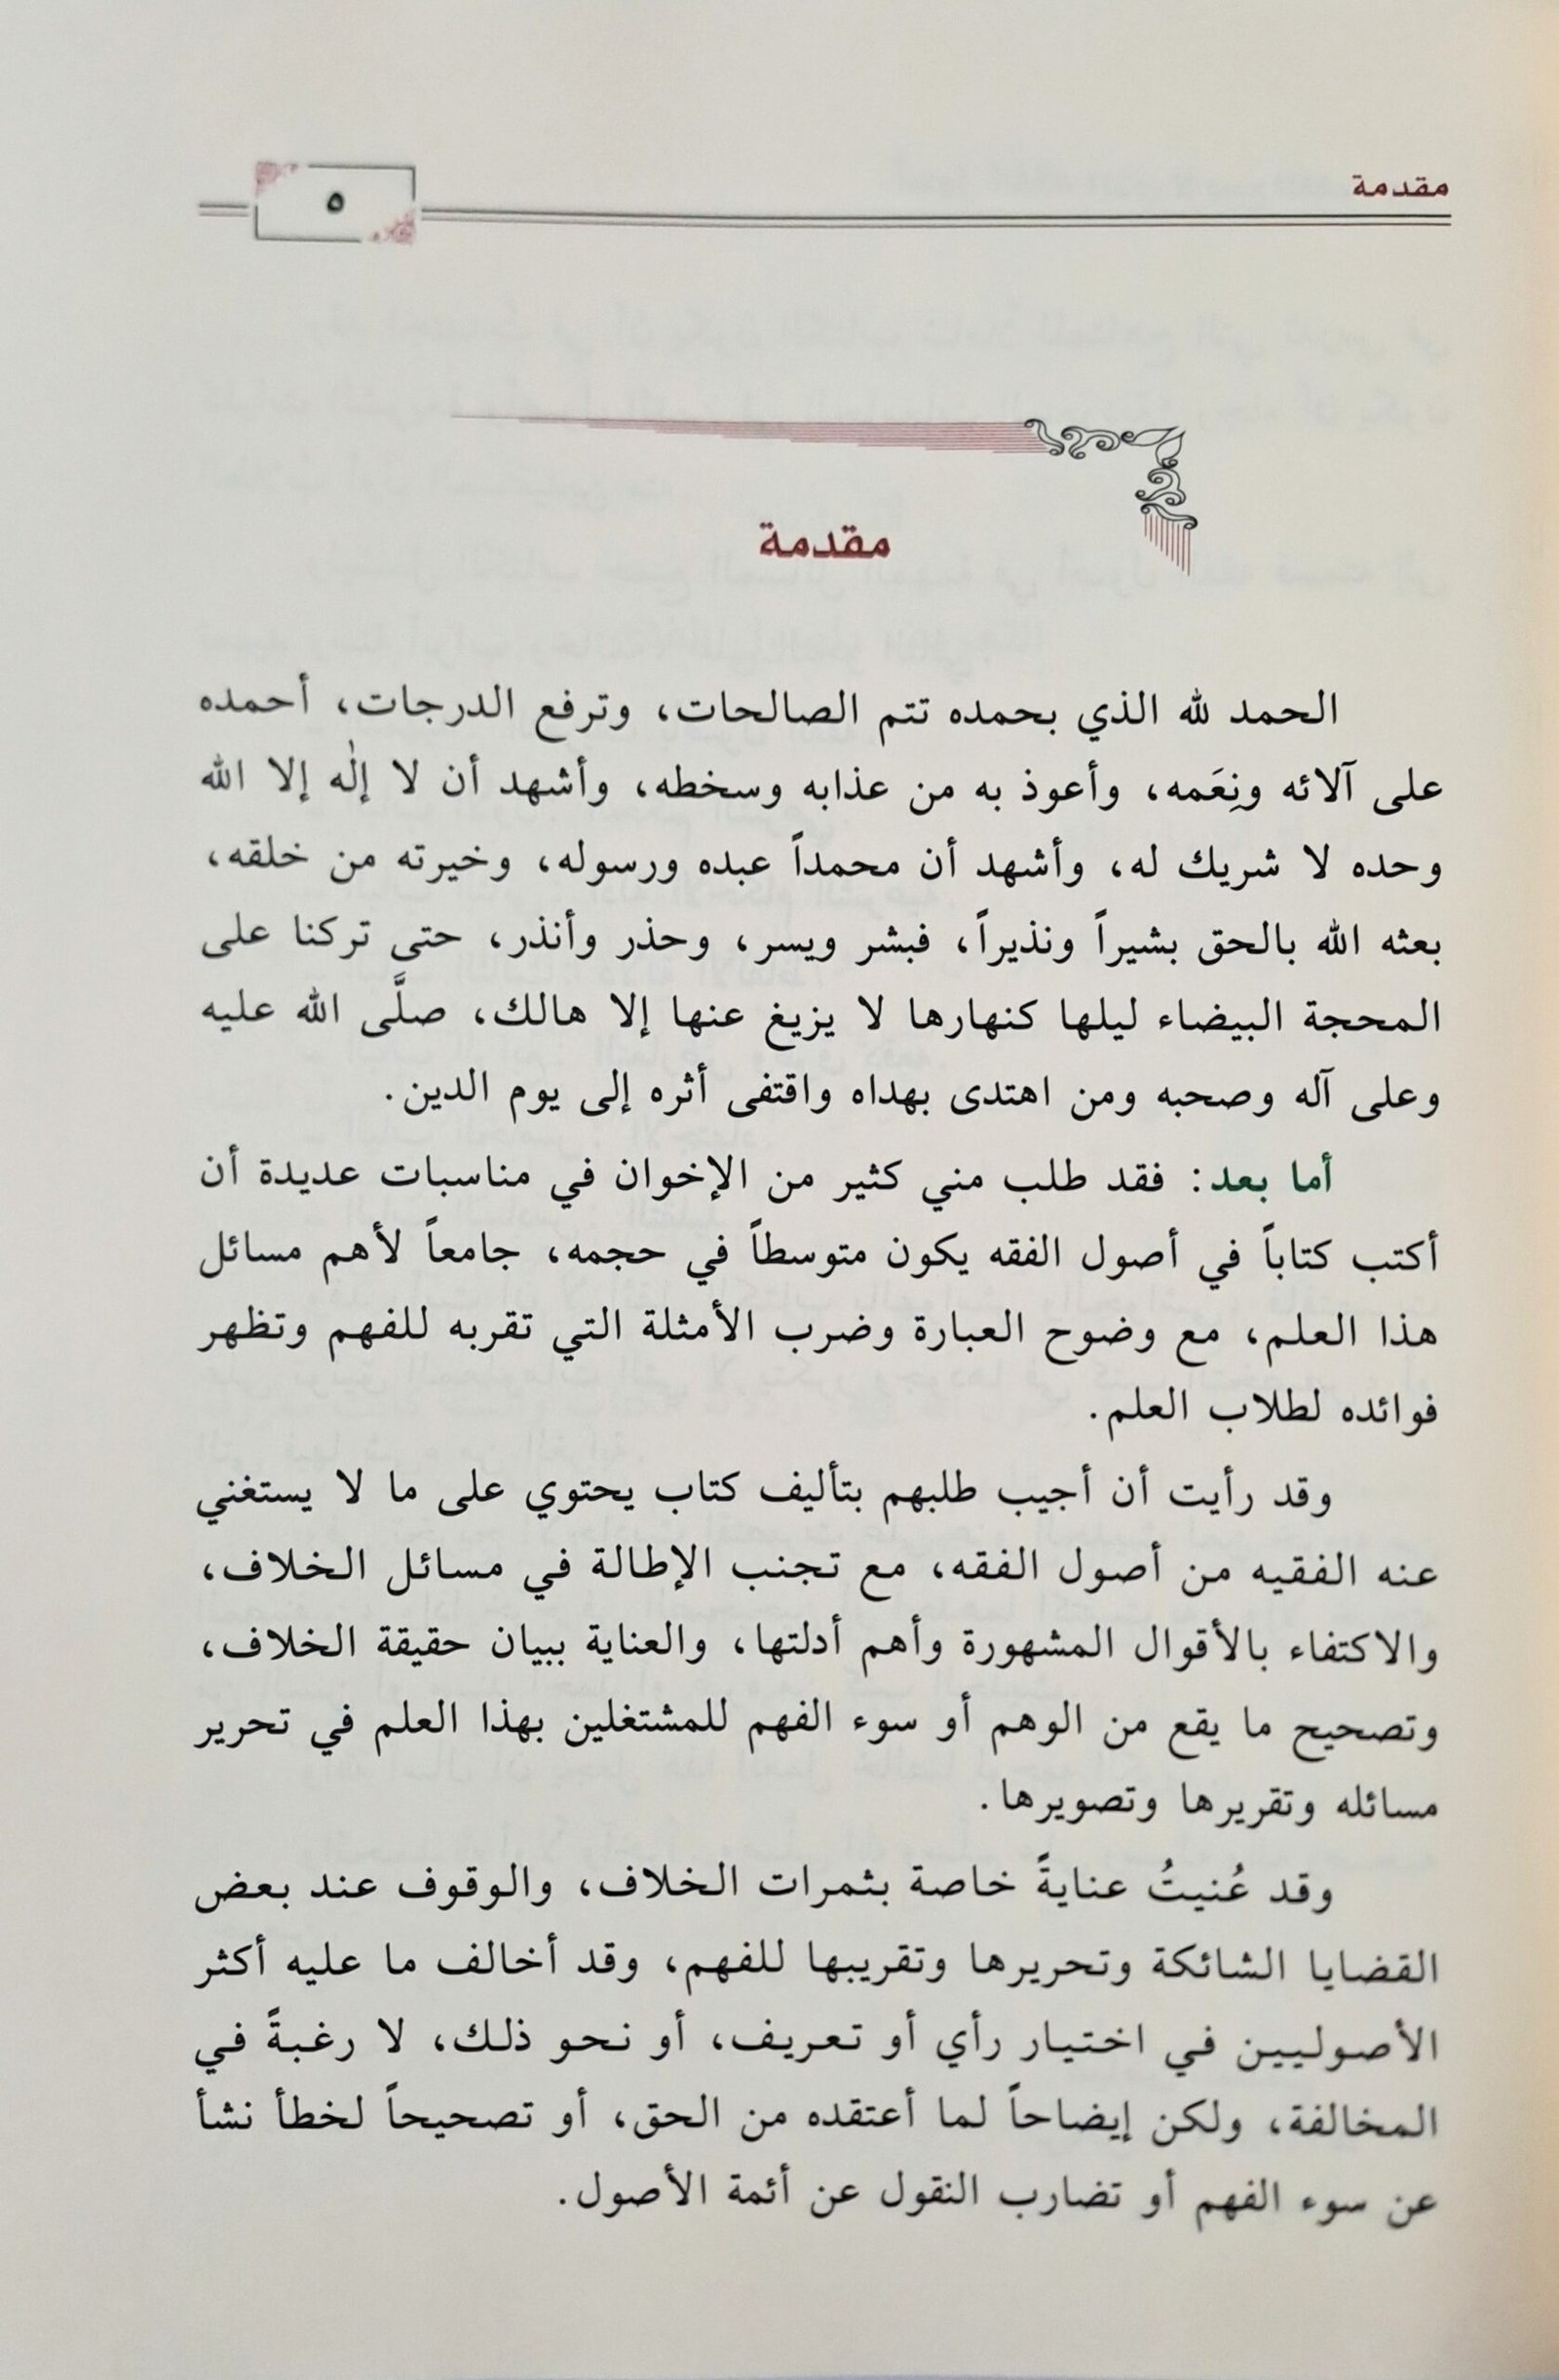 مقدمة
٥
مقدمة
الحمد لله الذي بحمده تتم الصالحات، وترفع الدرجات، أحمده
على آلائه ونِعَمه، وأعوذ به من عذابه وسخطه، وأشهد أن لا إلٰه إلا الله
وحده لا شريك له، وأشهد أن محمداً عبده ورسوله، وخيرته من خلقه،
بعثه الله بالحق بشيراً ونذيراً، فبشر ويسر، وحذر وأنذر، حتى تركنا على
المحجة البيضاء ليلها كنهارها لا يزيغ عنها إلا هالك، صلَّى الله عليه
وعلى آله وصحبه ومن اهتدى بهداه واقتفى أثره إلى يوم الدين.
أما بعد: فقد طلب مني كثير من الإخوان في مناسبات عديدة أن
أكتب كتاباً في أصول الفقه يكون متوسطاً في حجمه، جامعاً لأهم مسائل
هذا العلم، مع وضوح العبارة وضرب الأمثلة التي تقربه للفهم وتظهر
فوائده لطلاب العلم.
وقد رأيت أن أجيب طلبهم بتأليف كتاب يحتوي على ما لا يستغني
عنه الفقيه من أصول الفقه، مع تجنب الإطالة في مسائل الخلاف،
والاكتفاء بالأقوال المشهورة وأهم أدلتها، والعناية ببيان حقيقة الخلاف،
وتصحيح ما يقع من الوهم أو سوء الفهم للمشتغلين بهذا العلم في تحرير
مسائله وتقريرها وتصويرها.
وقد عُنيتُ عنايةً خاصة بثمرات الخلاف، والوقوف عند بعض
القضايا الشائكة وتحريرها وتقريبها للفهم، وقد أخالف ما عليه أكثر
الأصوليين في اختيار رأي أو تعريف، أو نحو ذلك، لا رغبةً في
المخالفة، ولكن إيضاحاً لما أعتقده من الحق، أو تصحيحاً لخطأ نشأ
عن سوء الفهم أو تضارب النقول عن أئمة الأصول.